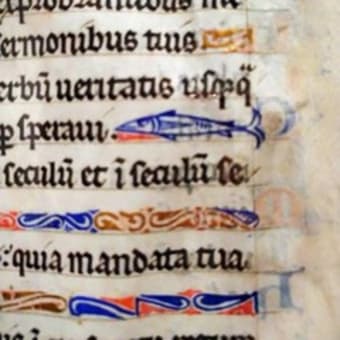 exprobrantibus mi
sermonibus tuis
erbū ueritatis usq̢q̄
ꝑ speraui.
seculū et ī seculū se
: quia mandata tua